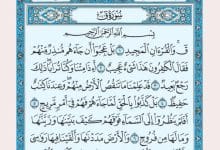 سُورَةُ قٓ
بِسْمِ ٱللَّهِ ٱلرَّحْمَٰنِ ٱلرَّحِيمِ
قٓ ۚ وَٱلْقُرْءَانِ ٱلْمَجِيدِ ١ بَلْ عَجِبُوٓا۟ أَن جَآءَهُم مُّنذِرٌ مِّنْهُمْ
فَقَالَ ٱلْكَٰفِرُونَ هَٰذَا شَىْءٌ عَجِيبٌ ٢ أَءِذَا مِتْنَا وَكُنَّا تُرَابًا ۖ ذَٰلِكَ
رَجْعٌۢ بَعِيدٌ ٣ قَدْ عَلِمْنَا مَا تَنقُصُ ٱلْأَرْضُ مِنْهُمْ ۖ وَعِندَنَا كِتَٰبٌ
حَفِيظٌۢ ٤ بَلْ كَذَّبُوا۟ بِٱلْحَقِّ لَمَّا جَآءَهُمْ فَهُمْ فِىٓ أَمْرٍ مَّرِيجٍ ٥
أَفَلَمْ يَنظُرُوٓا۟ إِلَى ٱلسَّمَآءِ فَوْقَهُمْ كَيْفَ بَنَيْنَٰهَا وَزَيَّنَّٰهَا
وَمَا لَهَا مِن فُرُوجٍ ٦ وَٱلْأَرْضَ مَدَدْنَٰهَا وَأَلْقَيْنَا فِيهَا رَوَٰسِىَ